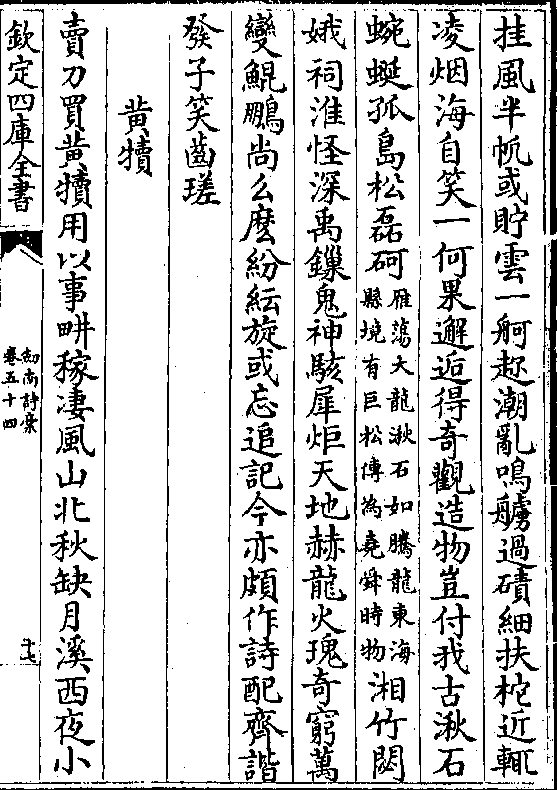 挂風半帆或貯雲一舸趁潮亂鳴艣過磧細扶柁近輒
凌烟海自笑一何果邂逅得奇觀造物豈付我古湫石
蜿蜒孤島松磊砢雁蕩大龍湫石如騰龍東海縣境有巨松傳為堯舜時物湘竹閟
娥祠淮怪深禹鏁鬼神駭犀炬天地赫龍火瑰奇窮萬
變鯤鵬尚么麽紛紜旋或忘追記今亦頗作詩配齊諧
發子笑齒瑳
黃犢
賣刀買黃犢用以事畊稼凄風山北秋缺月溪西夜小
欽定四庫全書
劍南詩藁
卷五十四
十七